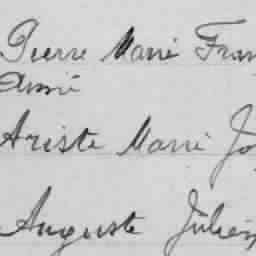 Pierre Marie Fran
Aimé
Ariste Marie Jo
Auguste Julien